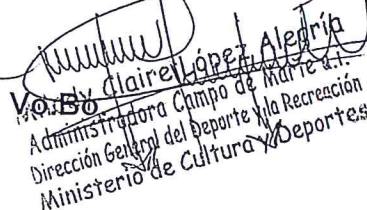 Claire López Alegría
Vo.Bo
Administradora Campo de Marte a.i.
Dirección General del Deporte y la Recreación
Ministerio de Cultura y Deportes